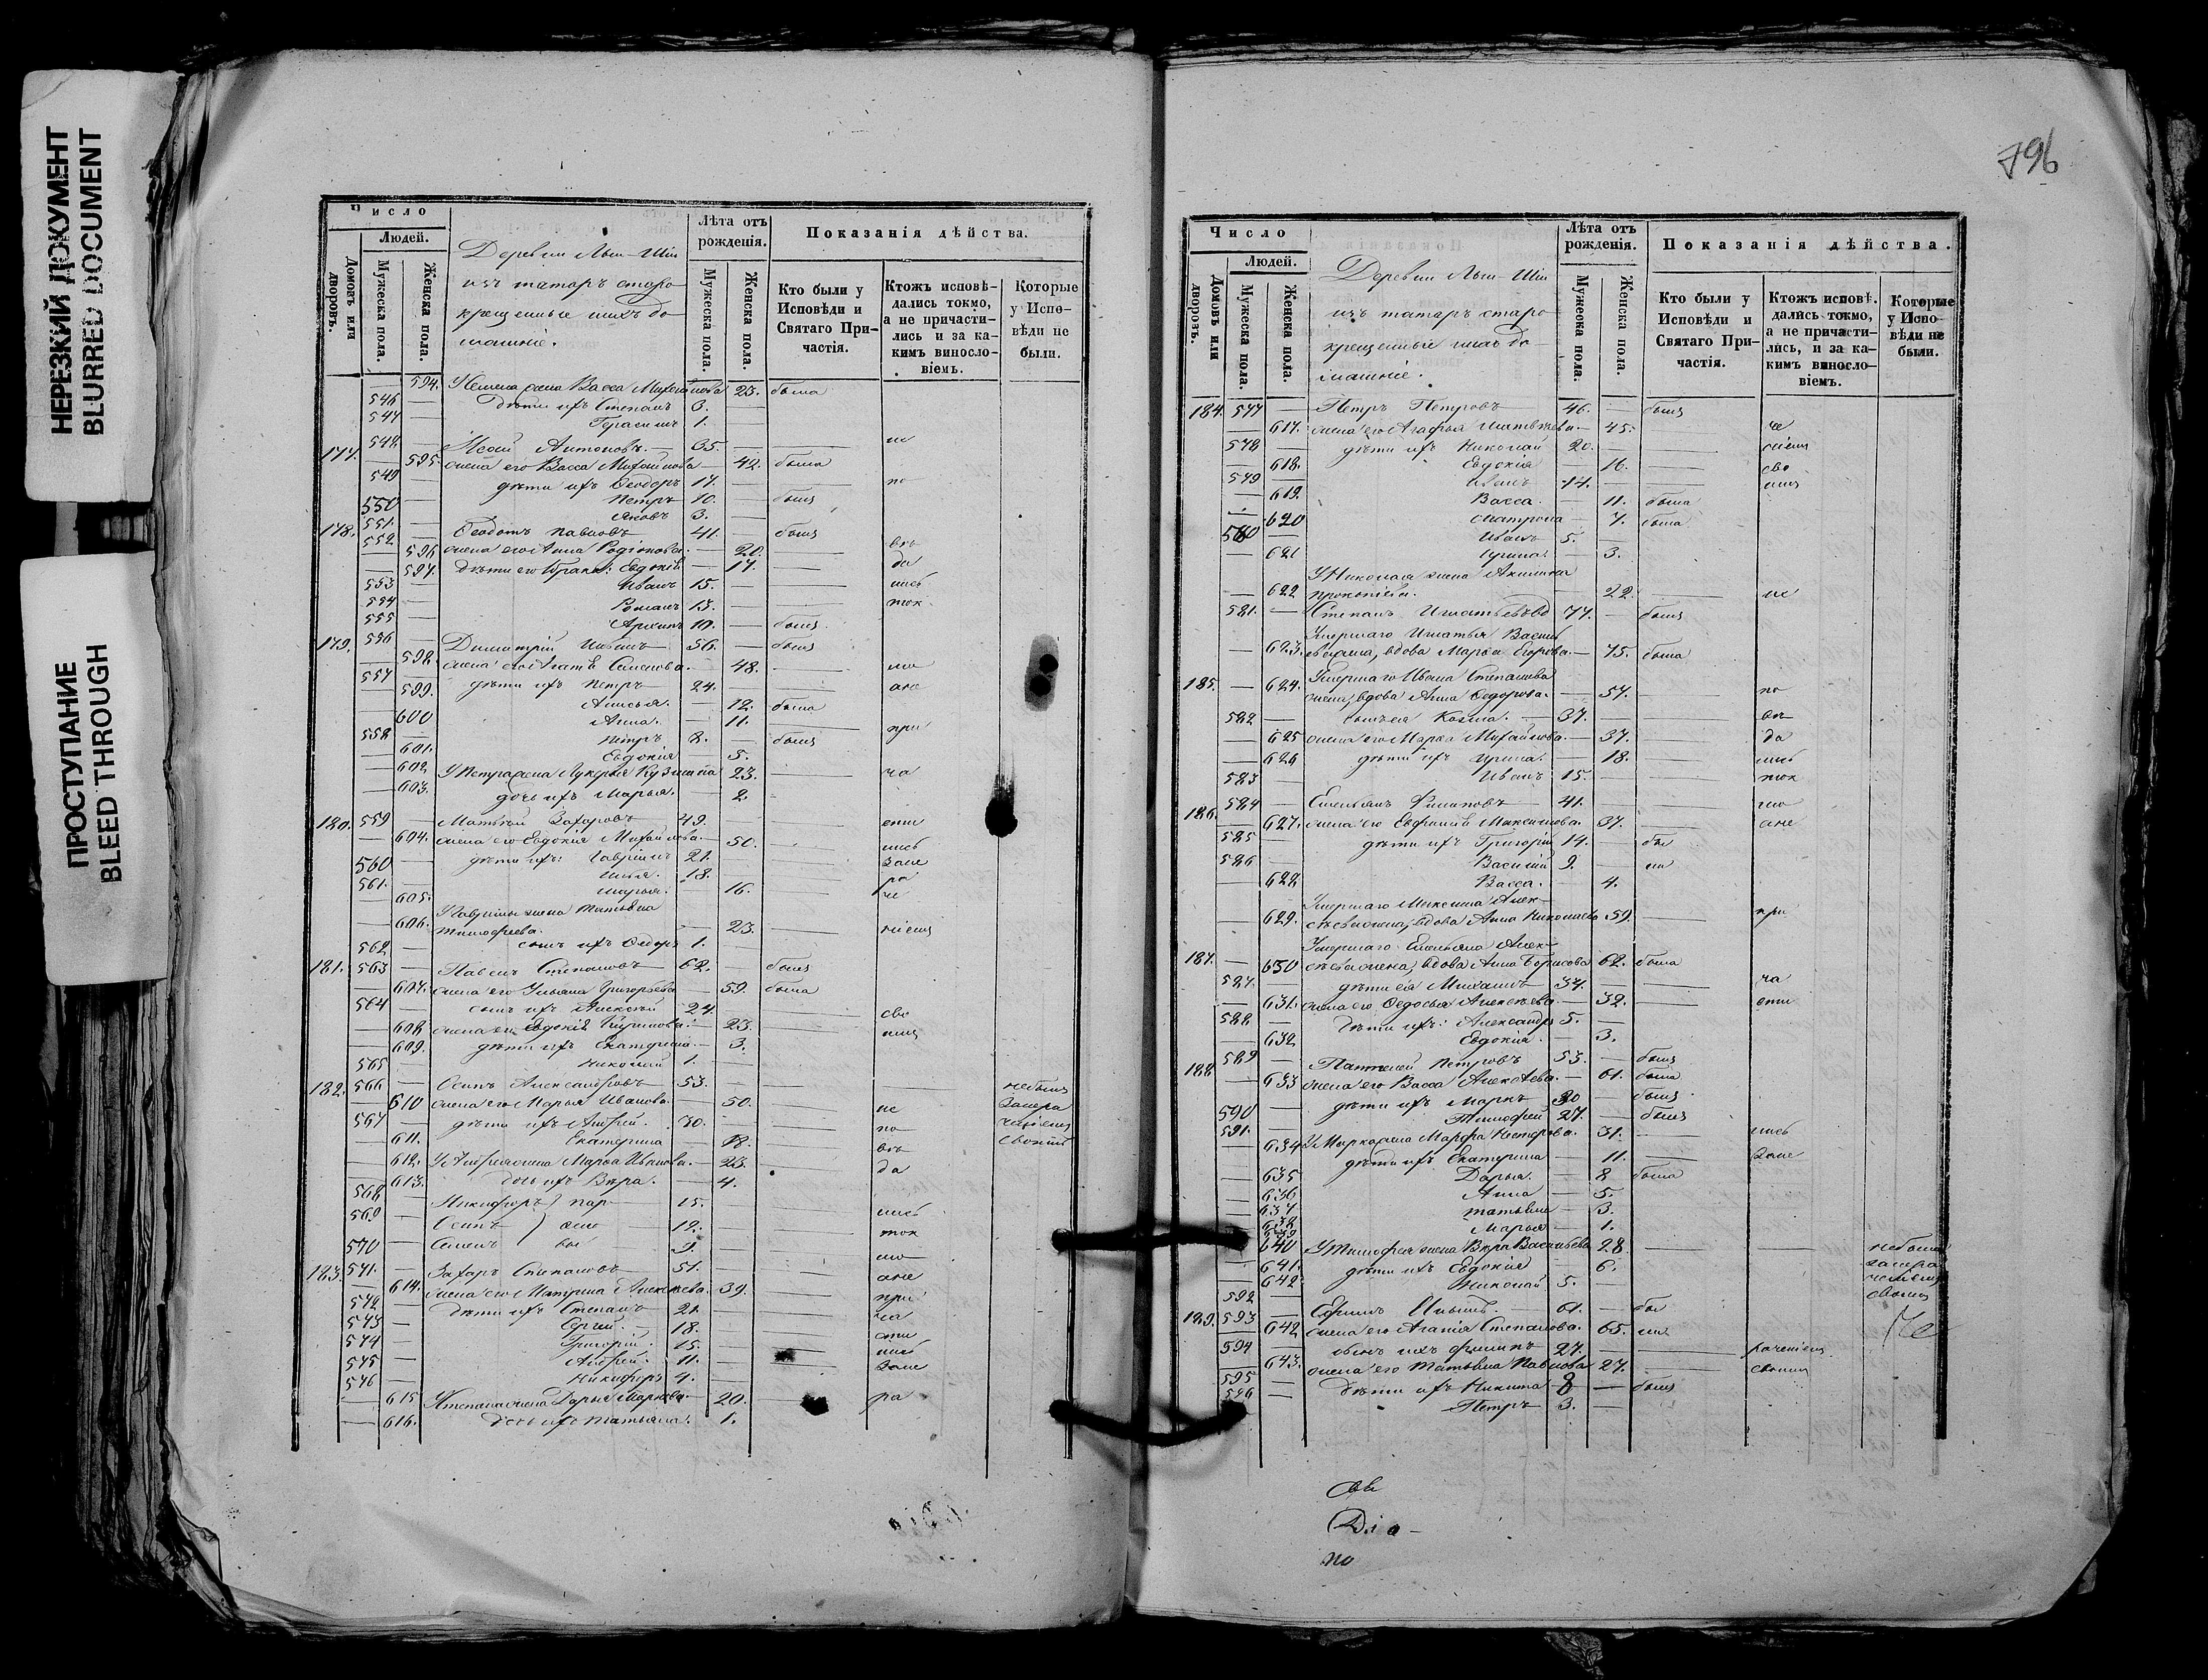 НЕРЕЗКИЙ ДОКУМЕНТ
BLURRED DOCUMENT
ПРОСТУПАНИЕ
BLEED THROUGH
Число
Людей.
Домовъ или дворовъ.
Мужеска пола.
Женска пола.
Деревни Лыи-Ши
изъ татаръ старо
крещенные ихъ до
машніе.
Лѣта отъ рожденія.
Мужеска пола.
Женска пола.
Показанія дѣйства.
Кто были у Исповѣди и Святаго Причастія.
Ктожъ исповѣдались токмо, а не причастились и за какимъ винословіемъ.
Которые у Исповѣди не были.
594. жена Васса Михайлова 23. была
546 дѣти ихъ Степанъ 3.
547 Герасимъ 1.
177. 548 Антоновъ 35. не
595. жена его Васса Михайлова 42. была
549 дѣти ихъ Ѳеодоръ 17. по
550 Петръ 10. былъ
551 Яковъ 3.
178. 552 Ѳеодотъ Павловъ 41. былъ
596 жена его Анна Родіонова 20. вѣ
597. дѣти его брака: Евдокія 17. да
553 Иванъ 15. лись
554 Романъ 13. ток
555 Архипъ 10. былъ
179. 556 Димитрій Ивановъ 56. былъ
598. жена его Агаѳія Семенова 48. мо
557 дѣти ихъ Петръ 24. ане
599. Анисья. 12. была
600 Анна. 11. при
558 Петръ 8. былъ
601. Евдокія 5.
602 У Петра жена Лукерья Кузмина 23. ча
603. дочь ихъ Марья. 2
180. 559 Матвѣй Захаровъ 49. сти
604. жена его Евдокія Михайлова 50. лись
560 дѣти ихъ: Гавріилъ 21. зане
561. Илья. 18. ра
605. Марья. 16. че
У Гавріилы жена Татьяна
606. Тимофеева. 23. ніемъ
562 сынъ ихъ Ѳедоръ 1.
181. 563 Павелъ Степановъ 62. былъ
607. жена его Ульяна Григорьева 59. была
564 сынъ ихъ Алексѣй 24. сво
608 жена его Евдокія Кирилова 23. имъ
609. дѣти ихъ Екатерина 3.
565 Николай 1.
182. 566 Осипъ Александровъ 53. небылъ
610 жена его Марья Иванова 50. не занера
567 дѣти ихъ Андрей. 30. по ченіемъ
611. Екатерина 18. вѣ своимъ
612. У Андрея жена Марья Иванова 23. да
613. дочь ихъ Вѣра. 4.
568 Никифоръ 15. лись
569 Осипъ 12. ток
570 Семенъ 9. мо
183. 571. Захаръ Степановъ 51. ане
614. жена его Матрена Алексѣева 39. при
572 дѣти ихъ Степанъ 21. ча
573 Сергей 18. сти
574 Григорій 15. лись
575 Андрей 11. зане
576 Никифоръ 4.
615 У Степана жена Дарья Маркова 20. ра
616. дочь ихъ Татьяна 1.
796
Число
Людей.
Домовъ или дворовъ.
Мужеска пола.
Женска пола.
Деревни Лыи-Ши
изъ татаръ старо
крещенные ихъ до
машніе.
Лѣта отъ рожденія.
Мужеска пола.
Женска пола.
Показанія дѣйства.
Кто были у Исповѣди и Святаго Причастія.
Ктожъ исповѣдались токмо, а не причастились, и за какимъ винословіемъ.
Которые у Исповѣди не были.
184. 577 Петръ Петровъ 46. былъ
617. жена его Агафья Игнатьева 45. че
578 дѣти ихъ Николай 20. ніемъ
618. Евдокія 16. сво
579 Иванъ 14. имъ
619. Васса 11. была
620 Матрона 7. была
580 Иванъ 5.
621 Ирина 3.
У Николая жена Акилина
622 Прокопіева. 22. не
581. Степанъ Игнатьевъ 77. былъ
Умершаго Игнатья
623. вдова Марья Егорова 75. была
185. Умершаго Ивана Степанова
624. жена, вдова Анна Ѳедорова. 57. по
582 сынъ ея Козма. 37. вѣ
625 жена его Марья Михайлова 37. да
626 дѣти ихъ Ирина. 18. лись
583 Иванъ 15. ток
186. 584 Емельянъ Филиповъ 41. мо
627. жена его Евфимія Максимова 37. ане
585 дѣти ихъ Григорій 14. бы
586 Василій 9. ли
628 Васса. 4.
Умершаго Максима Алек-
629. сѣева жена, вдова Анна Николаева 59. при
187. Умершаго Емельяна Алек-
630 сѣева жена, вдова Анна Борисова 62. была
587. дѣти ея Михаилъ 34. ча
631. жена его Ѳедосья Алексѣева 32. сти
588 дѣти ихъ: Александръ 5.
632 Евдокія 3.
188 589 Пантелей Петровъ 53. былъ
633 жена его Васса Алексѣева. 61. была
590 дѣти ихъ Маркъ 30 былъ
591. Тимофей 27. былъ
634 У Марка жена Марфа Нестерова. 31. лись
дѣти ихъ Екатерина 11. зане
635 Дарья. 8 была
636 Анна 5.
637 Татьяна 3.
638 Марья 1.
639
640 У Тимофея жена Вѣра Васильева 28. небыла
641. дѣти ихъ Евдокія 6. занера
642 ченіемъ
592 Николай 5. своимъ
189. 593 Ефимъ Ивановъ 61. бы
642 жена его Агапія Степанова. 65. ли
594 сынъ ихъ Филипъ 27. раченіемъ
643. жена его Татьяна Павлова 27. своимъ
595 дѣти ихъ Никита 8 былъ
596 Петръ 3.
Діа-